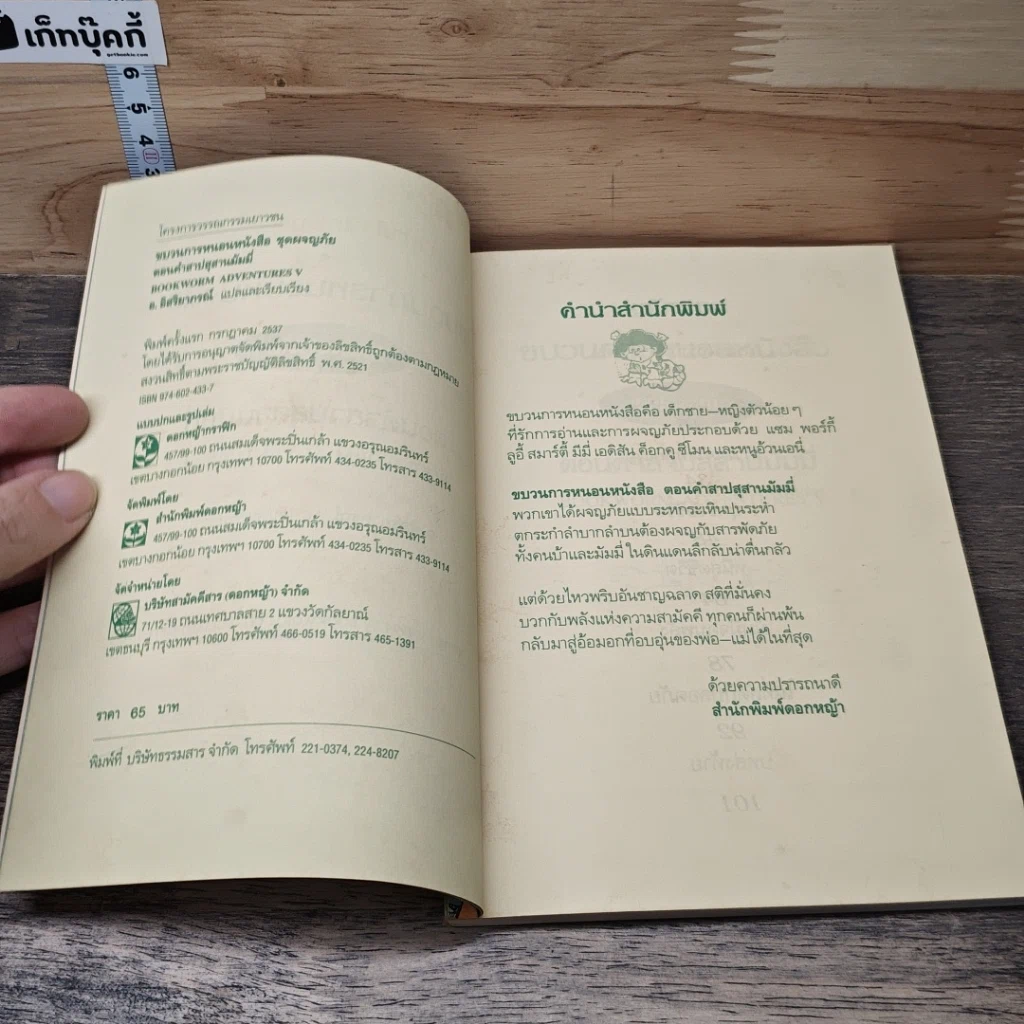 เก็ทบุ๊คกี้
getbookie.com
6
5
4
3
โครงการวรรณกรรมเยาวชน
ขบวนการหนอนหนังสือ ชุดผจญภัย
ตอนคำสาปสุสานมัมมี่
BOOKWORM ADVENTURES V
อ. อิสริยาภรณ์ แปลและเรียบเรียง
พิมพ์ครั้งแรก กรกฎาคม 2537
โดยได้รับการอนุญาตจัดพิมพ์จากเจ้าของลิขสิทธิ์ถูกต้องตามกฎหมาย
สงวนสิทธิ์ตามพระราชบัญญัติลิขสิทธิ์ พ.ศ. 2521
ISBN 974-602-433-7
แบบปกและรูปเล่ม
ดอกหญ้ากราฟิก
457/99-100 ถนนสมเด็จพระปิ่นเกล้า แขวงอรุณอมรินทร์
เขตบางกอกน้อย กรุงเทพฯ 10700 โทรศัพท์ 434-0235 โทรสาร 433-9114
จัดพิมพ์โดย
สำนักพิมพ์ดอกหญ้า
457/99-100 ถนนสมเด็จพระปิ่นเกล้า แขวงอรุณอมรินทร์
เขตบางกอกน้อย กรุงเทพฯ 10700 โทรศัพท์ 434-0235 โทรสาร 433-9114
จัดจำหน่ายโดย
บริษัทสามัคคีสาร (ดอกหญ้า) จำกัด
71/12-19 ถนนเทศบาลสาย 2 แขวงวัดกัลยาณ์
เขตธนบุรี กรุงเทพฯ 10600 โทรศัพท์ 466-0519 โทรสาร 465-1391
ราคา 65 บาท
พิมพ์ที่ บริษัทธรรมสาร จำกัด โทรศัพท์ 221-0374, 224-8207
คำนำสำนักพิมพ์
ขบวนการหนอนหนังสือคือ เด็กชาย—หญิงตัวน้อย ๆ
ที่รักการอ่านและการผจญภัยประกอบด้วย แซม พอร์กี้
ลูอี้ สมาร์ตี้ มีมี่ เอดิสัน ค็อกคู ซีโมน และหนูอ้วนเอนี่
ขบวนการหนอนหนังสือ ตอนคำสาปสุสานมัมมี่
พวกเขาได้ผจญภัยแบบระหกระเหินปนระห่ำ
ตกระกำลำบากลำบนต้องผจญกับสารพัดภัย
ทั้งคนบ้าและมัมมี่ ในดินแดนลึกลับน่าตื่นกลัว
แต่ด้วยไหวพริบอันชาญฉลาด สติที่มั่นคง
บวกกับพลังแห่งความสามัคคี ทุกคนก็ผ่านพ้น
กลับมาสู่อ้อมอกที่อบอุ่นของพ่อ—แม่ได้ในที่สุด
ด้วยความปรารถนาดี
สำนักพิมพ์ดอกหญ้า